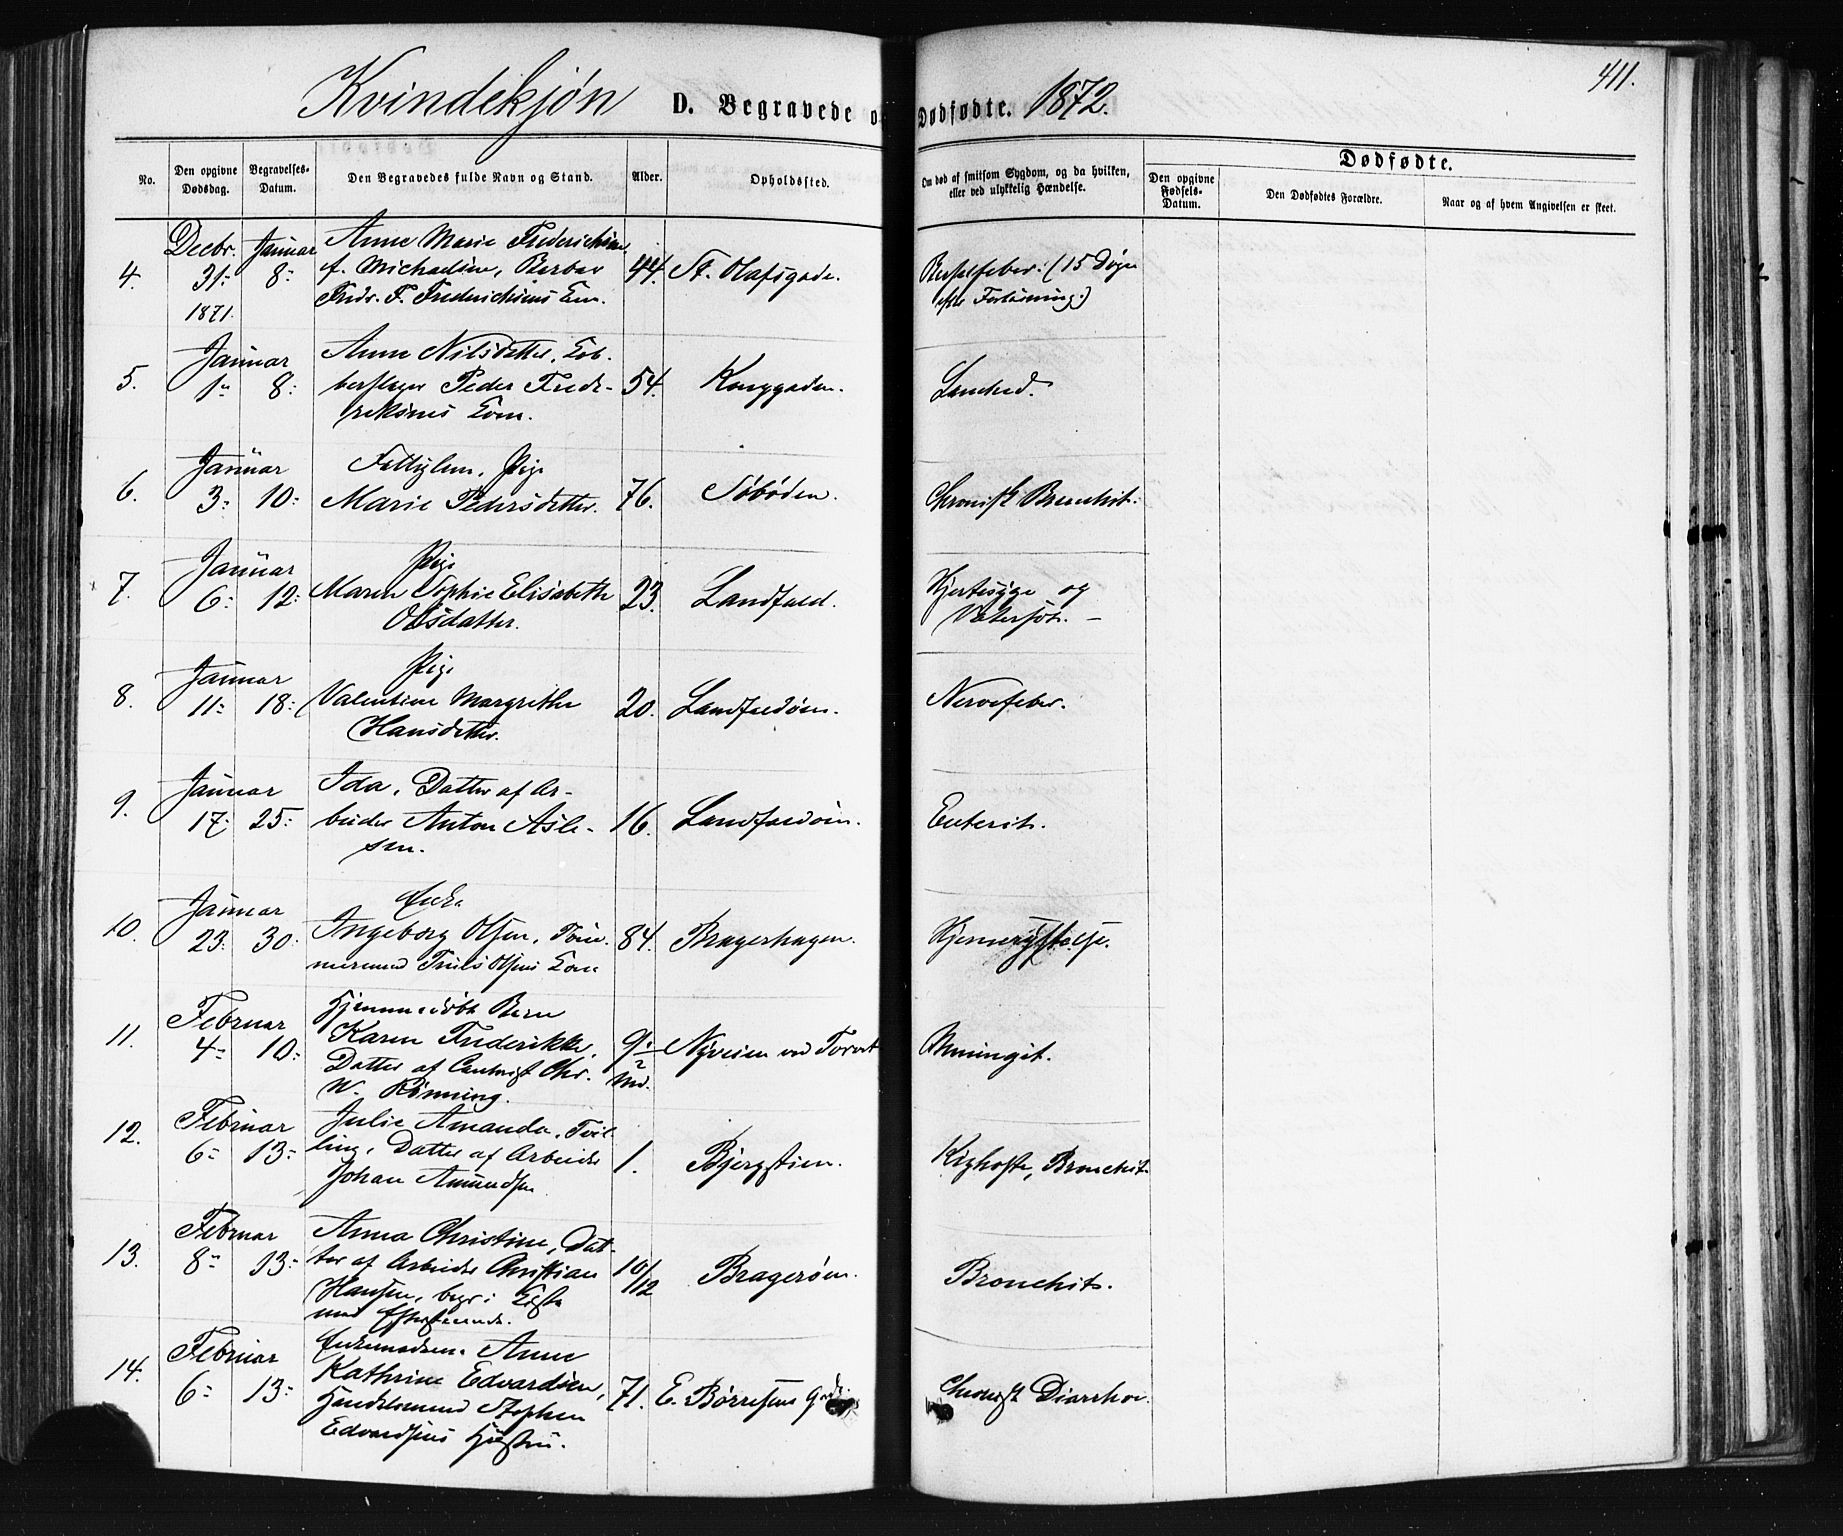 411.
Kvindekjøn D. Begravede og Dødfødte. 1872.
No.
Den opgivne Dødsdag.
Begravelses-Datum.
Den Begravedes fulde Navn og Stand.
Alder.
Opholdssted.
Om død af smitsom Sygdom, og da hvilken, eller ved ulykkelig Hændelse.
Dødfødte.
Den opgivne Fødsels-Datum.
Den Dødfødtes Forældre.
Naar og af hvem Angivelsen er skeet.
4. Decbr. 31: 1871. Januar 8:
Anne Marie Frederichsen
f. Michaelsen,
Fredr. F. Frederichsens Kone.
44. St. Olafsgade.
Barselfeber. (15 Døgn
efter Forløsning.)
5. Januar 1: 8:
Anne Nilsdatter, Kob-
berslager Peder Fred-
riksens Kone.
54. Konggaden.
6. Januar 3: 10:
Fattiglem, Pige
Marie Pedersdatter.
76. Søbøden.
Chronisk Bronchit.
7. Januar 6: 12:
Pige
Maren Sophie Elisabeth
Olsdatter.
23. Landfald.
Hjertesyge og
Vatersot. -
8. Januar 11: 18:
Pige
Valentine Margrethe
Hansdatter.
20. Landfaldøen.
Nervefeber.
9. Januar 17: 25:
Ida, Datter af Ar-
beider Anton Asle-
sen.
16. Landfaldøen.
Enterit.
10. Januar 23: 30:
Enke
Ingeborg Olsen, Tøm-
mermand Truls Olsens Kone
84. Bragerhagen.
Hjernerystelse.
11. Februar 4: 10:
Hjemmedøbt Barn
Karen Frederikke,
Datter af Chr.
W. Rønning.
9 Md. Nyveien ved Torvet
Meningit.
12. Februar 6: 13:
Julie Amanda, Tvil-
ling, Datter af Arbeider
Johan Amundsen
1. Bjergstien.
Kighoste, Bronchit.
13. Februar 8: 13:
Anna Christine, Dat-
ter af Arbeider Christian
Hansen, begr: i Kiste
med Efterstaaende.
10/12 Bragerøen.
Bronchit.
14. Februar 6: 13:
Enkemadam Anne
Kathrine Edvardsen,
Handelsmand Stephen
Edvardsens Hustru.
71. E. Børresens Gade.
Chronisk Diarrhoe.